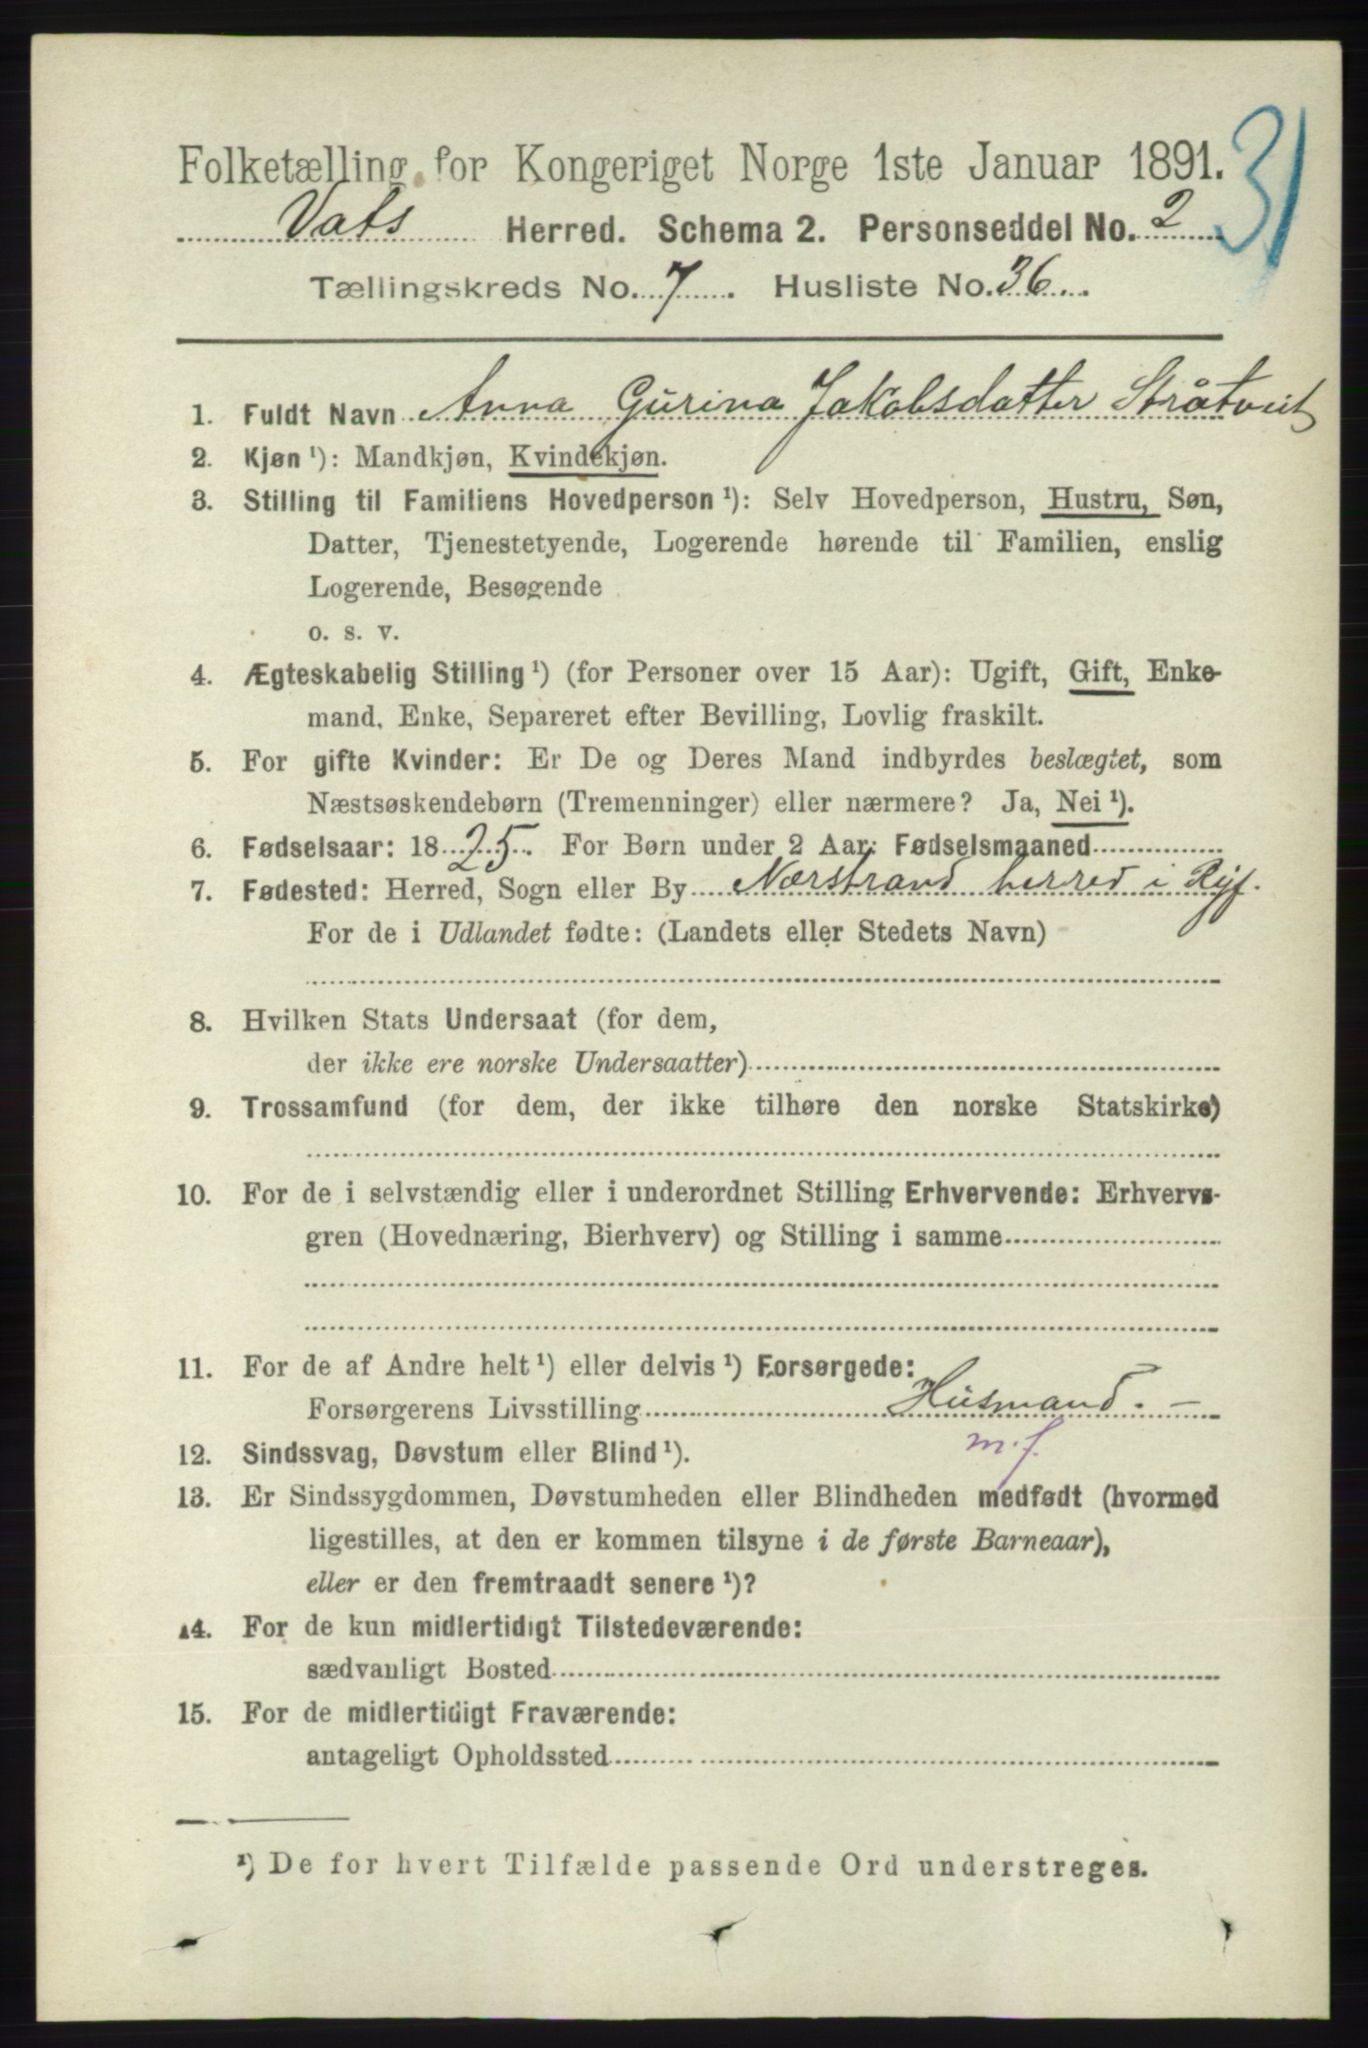 Folketælling for Kongeriget Norge 1ste Januar 1891.
31
Vats Herred. Schema 2. Personseddel No. 2
Tællingskreds No. 7. Husliste No. 36.
1. Fuldt Navn Anna Gurina Jakobsdatter Stråtveit
2. Kjøn ¹): Mandkjøn, Kvindekjøn.
3. Stilling til Familiens Hovedperson ¹): Selv Hovedperson, Hustru, Søn,
Datter, Tjenestetyende, Logerende hørende til Familien, enslig
Logerende, Besøgende
o. s. v.
4. Ægteskabelig Stilling ¹) (for Personer over 15 Aar): Ugift, Gift, Enke-
mand, Enke, Separeret efter Bevilling, Lovlig fraskilt.
5. For gifte Kvinder: Er De og Deres Mand indbyrdes beslægtet, som
Næstsøskendebørn (Tremenninger) eller nærmere? Ja, Nei ¹).
6. Fødselsaar: 1825. For Børn under 2 Aar: Fødselsmaaned
7. Fødested: Herred, Sogn eller By Nærstrand herred i Ryf.
For de i Udlandet fødte: (Landets eller Stedets Navn)
8. Hvilken Stats Undersaat (for dem,
der ikke ere norske Undersaatter)
9. Trossamfund (for dem, der ikke tilhøre den norske Statskirke)
10. For de i selvstændig eller i underordnet Stilling Erhvervende: Erhvervs-
gren (Hovednæring, Bierhverv) og Stilling i samme
11. For de af Andre helt ¹) eller delvis ¹) Forsørgede:
Forsørgerens Livsstilling Husmand. -
m. f.
12. Sindssvag, Døvstum eller Blind ¹).
13. Er Sindssygdommen, Døvstumheden eller Blindheden medfødt (hvormed
ligestilles, at den er kommen tilsyne i de første Barneaar),
eller er den fremtraadt senere ¹)?
14. For de kun midlertidigt Tilstedeværende:
sædvanligt Bosted
15. For de midlertidigt Fraværende:
antageligt Opholdssted
¹) De for hvert Tilfælde passende Ord understreges.